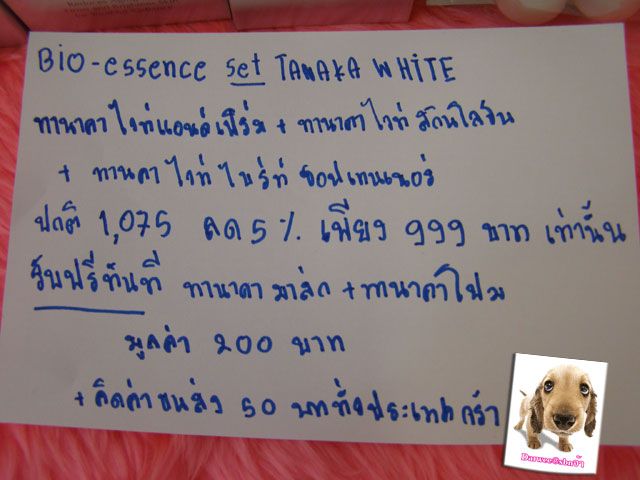 BiO-essence set TANAKA WHITE
ทานาคา ไวท์แอนด์เฟิร์ม + ทานาคาไวท์ สกินโลชั่น
+ ทานคา ไวท์ ไบร์ท ซอฟเทนเนอร์
ปกติ 1,075 ลด 5 % เพียง 999 บาท เท่านั้น
รับฟรีทันที ทานาคา มาส์ก + ทานาคาโฟม
มูลค่า 200 บาท
+ คิดค่าขนส่ง 50 บาททั่วประเทศ คร้า